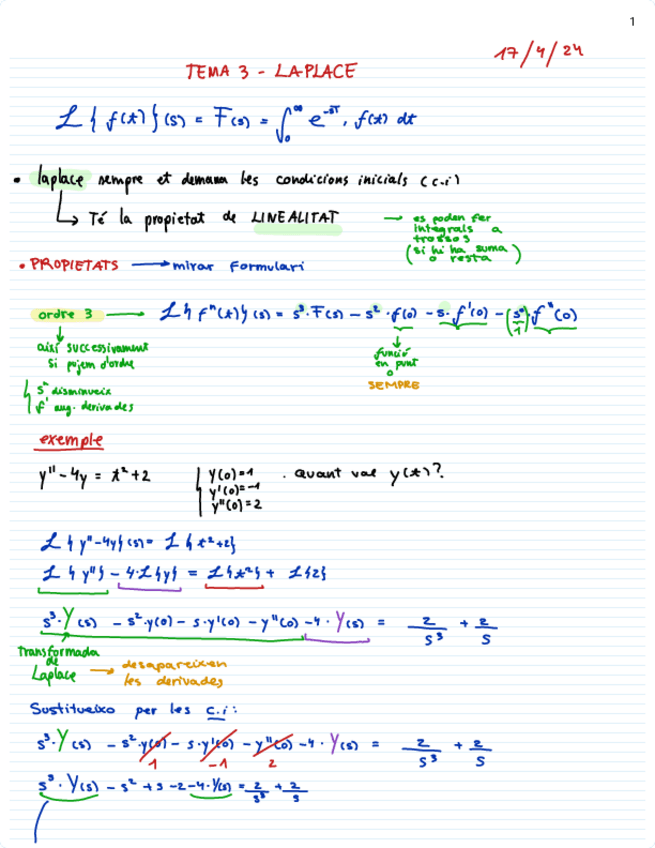 1
17/4/24
TEMA 3 - LAPLACE
ℒ{f(t)}(s) = F(s) = ∫₀^∞ e^-sT . f(t) dt
• laplace sempre et demana les condicions inicials (c.i)
↳ Té la propietat de LINEALITAT → es poden fer
integrals a
trossos
(si hi ha suma
o resta)
• PROPIETATS → mirar Formulari
ordre 3 → ℒ{f"(t)}(s) = s³·F(s) - s²·f(0) - s·f'(0) - (s⁰/1)·f"(0)
així successivament
si pujem d'ordre
funció
en punt
0
SEMPRE
{ sⁿ disminueix
f' aug. derivades
exemple
y" - 4y = t² + 2 { y(0)=1 . quant val y(t)?
y'(0)=-1
y"(0)=2
ℒ{y"-4y}(s) = ℒ{t²+2}
ℒ{y"} - 4·ℒ{y} = ℒ{t²} + ℒ{2}
s³·Y(s) - s²·y(0) - s·y'(0) - y"(0) - 4·Y(s) = 2/s³ + 2/s
Transformada
de
Laplace → desapareixen
les derivades
Sustitueixo per les c.i:
s³·Y(s) - s²·y(0) - s·y'(0) - y"(0) - 4·Y(s) = 2/s³ + 2/s
1 -1 2
s³·Y(s) - s² + s - 2 - 4·Y(s) = 2/s³ + 2/s